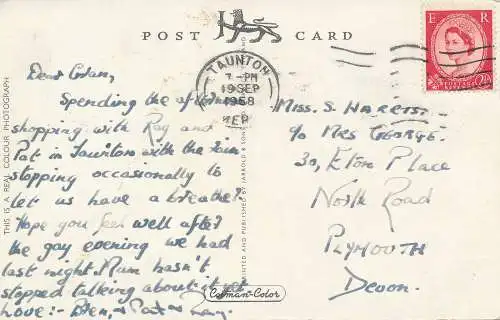 POST CARD
TAUNTON
7-PM
19 SEP
1958
E R
POSTAGE REVENUE
2½D
THIS IS A REAL COLOUR PHOTOGRAPH
Dear
Spending the afternoon
shopping with Ray and
Pat in Taunton with the
stopping occasionally to
let us have a breather.
Hope you feel well after
the gay evening we had
last night. Mum hasn't
stopped talking about it yet
Love:- Pat +
PRINTED AND PUBLISHED BY JARROLD & SONS
Colman-Color
Miss. S. HARRIS.
c/o MRS GEORGE.
30, Elton Place
North Road
PLYMOUTH
Devon.